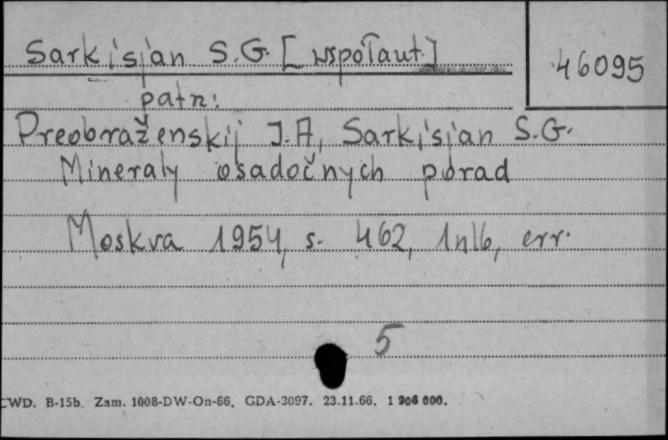 Sarkisjan S.G. [współaut.]
46095
patrz:
Preobraženskij I.A, Sarkisjan S.G.
Mineraly osadočnych porad
Moskva 1954, s. 462, 1nlb, err.
5
CWD. B-15b. Zam. 1008-DW-On-66. GDA-3097. 23.11.66. 1 906 000.